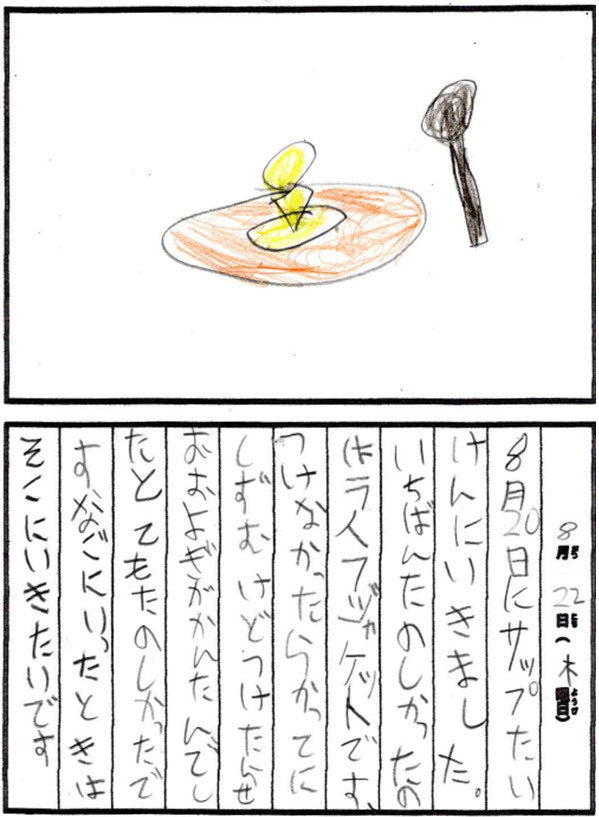 8月22日(木曜日)
8月20日にサップたい
けんにいきました。
いちばんたのしかったの
はライフジャケットです、
つけなかったらかってに
しずむけどつけたらせ
おおよぎがかんたんでし
たとてもたのしかったで
すなごにいったときは
そこにいきたいです